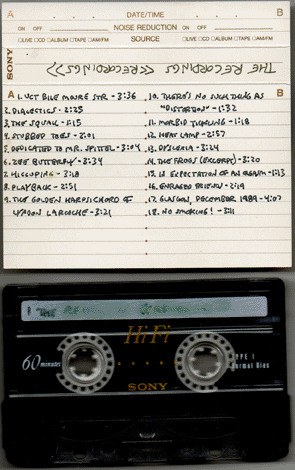 A DATE/TIME B
ON OFF NOISE REDUCTION ON OFF
☐LIVE ☐CD ☐ALBUM ☐TAPE ☐AM/FM SOURCE ☐LIVE ☐CD ☐ALBUM ☐TAPE ☐AM/FM
SONY
THE RECORDINGS <<RECORDINGS>>
A
B
1. VCT BILE NOIRE STR. - 3:36
2. DIALECTICS - 2:25
3. THE SQUALL - 1:15
4. STUBBED TOES - 2:01
5. DEDICATED TO MR. SPITEL - 3:04
6. ZEE BUTTERFLY - 3:34
7. HICCUPING - 3:18
8. PLAYBACK - 2:51
9. THE GOLDEN HARPSICHORD OF
LYNDON LAROUCHE - 3:21
10. THERE'S NO SUCH THING AS
"DISTORTION" - 1:32
11. MORBID TICKLING - 1:18
12. HEAT LAMP - 2:57
13. DYSLEXIA - 3:24
14. THE FROGS (EXCERPT) - 3:20
15. IN EXPECTATION OF AN ORGASM - 1:13
16. ENRAGED FRIEND - 2:19
17. GLASGOW, DECEMBER 1989 - 4:07
18. NO SMOKING! - 3:11
THE
HiFi
60 minutes
TYPE I
Normal Bias
SONY